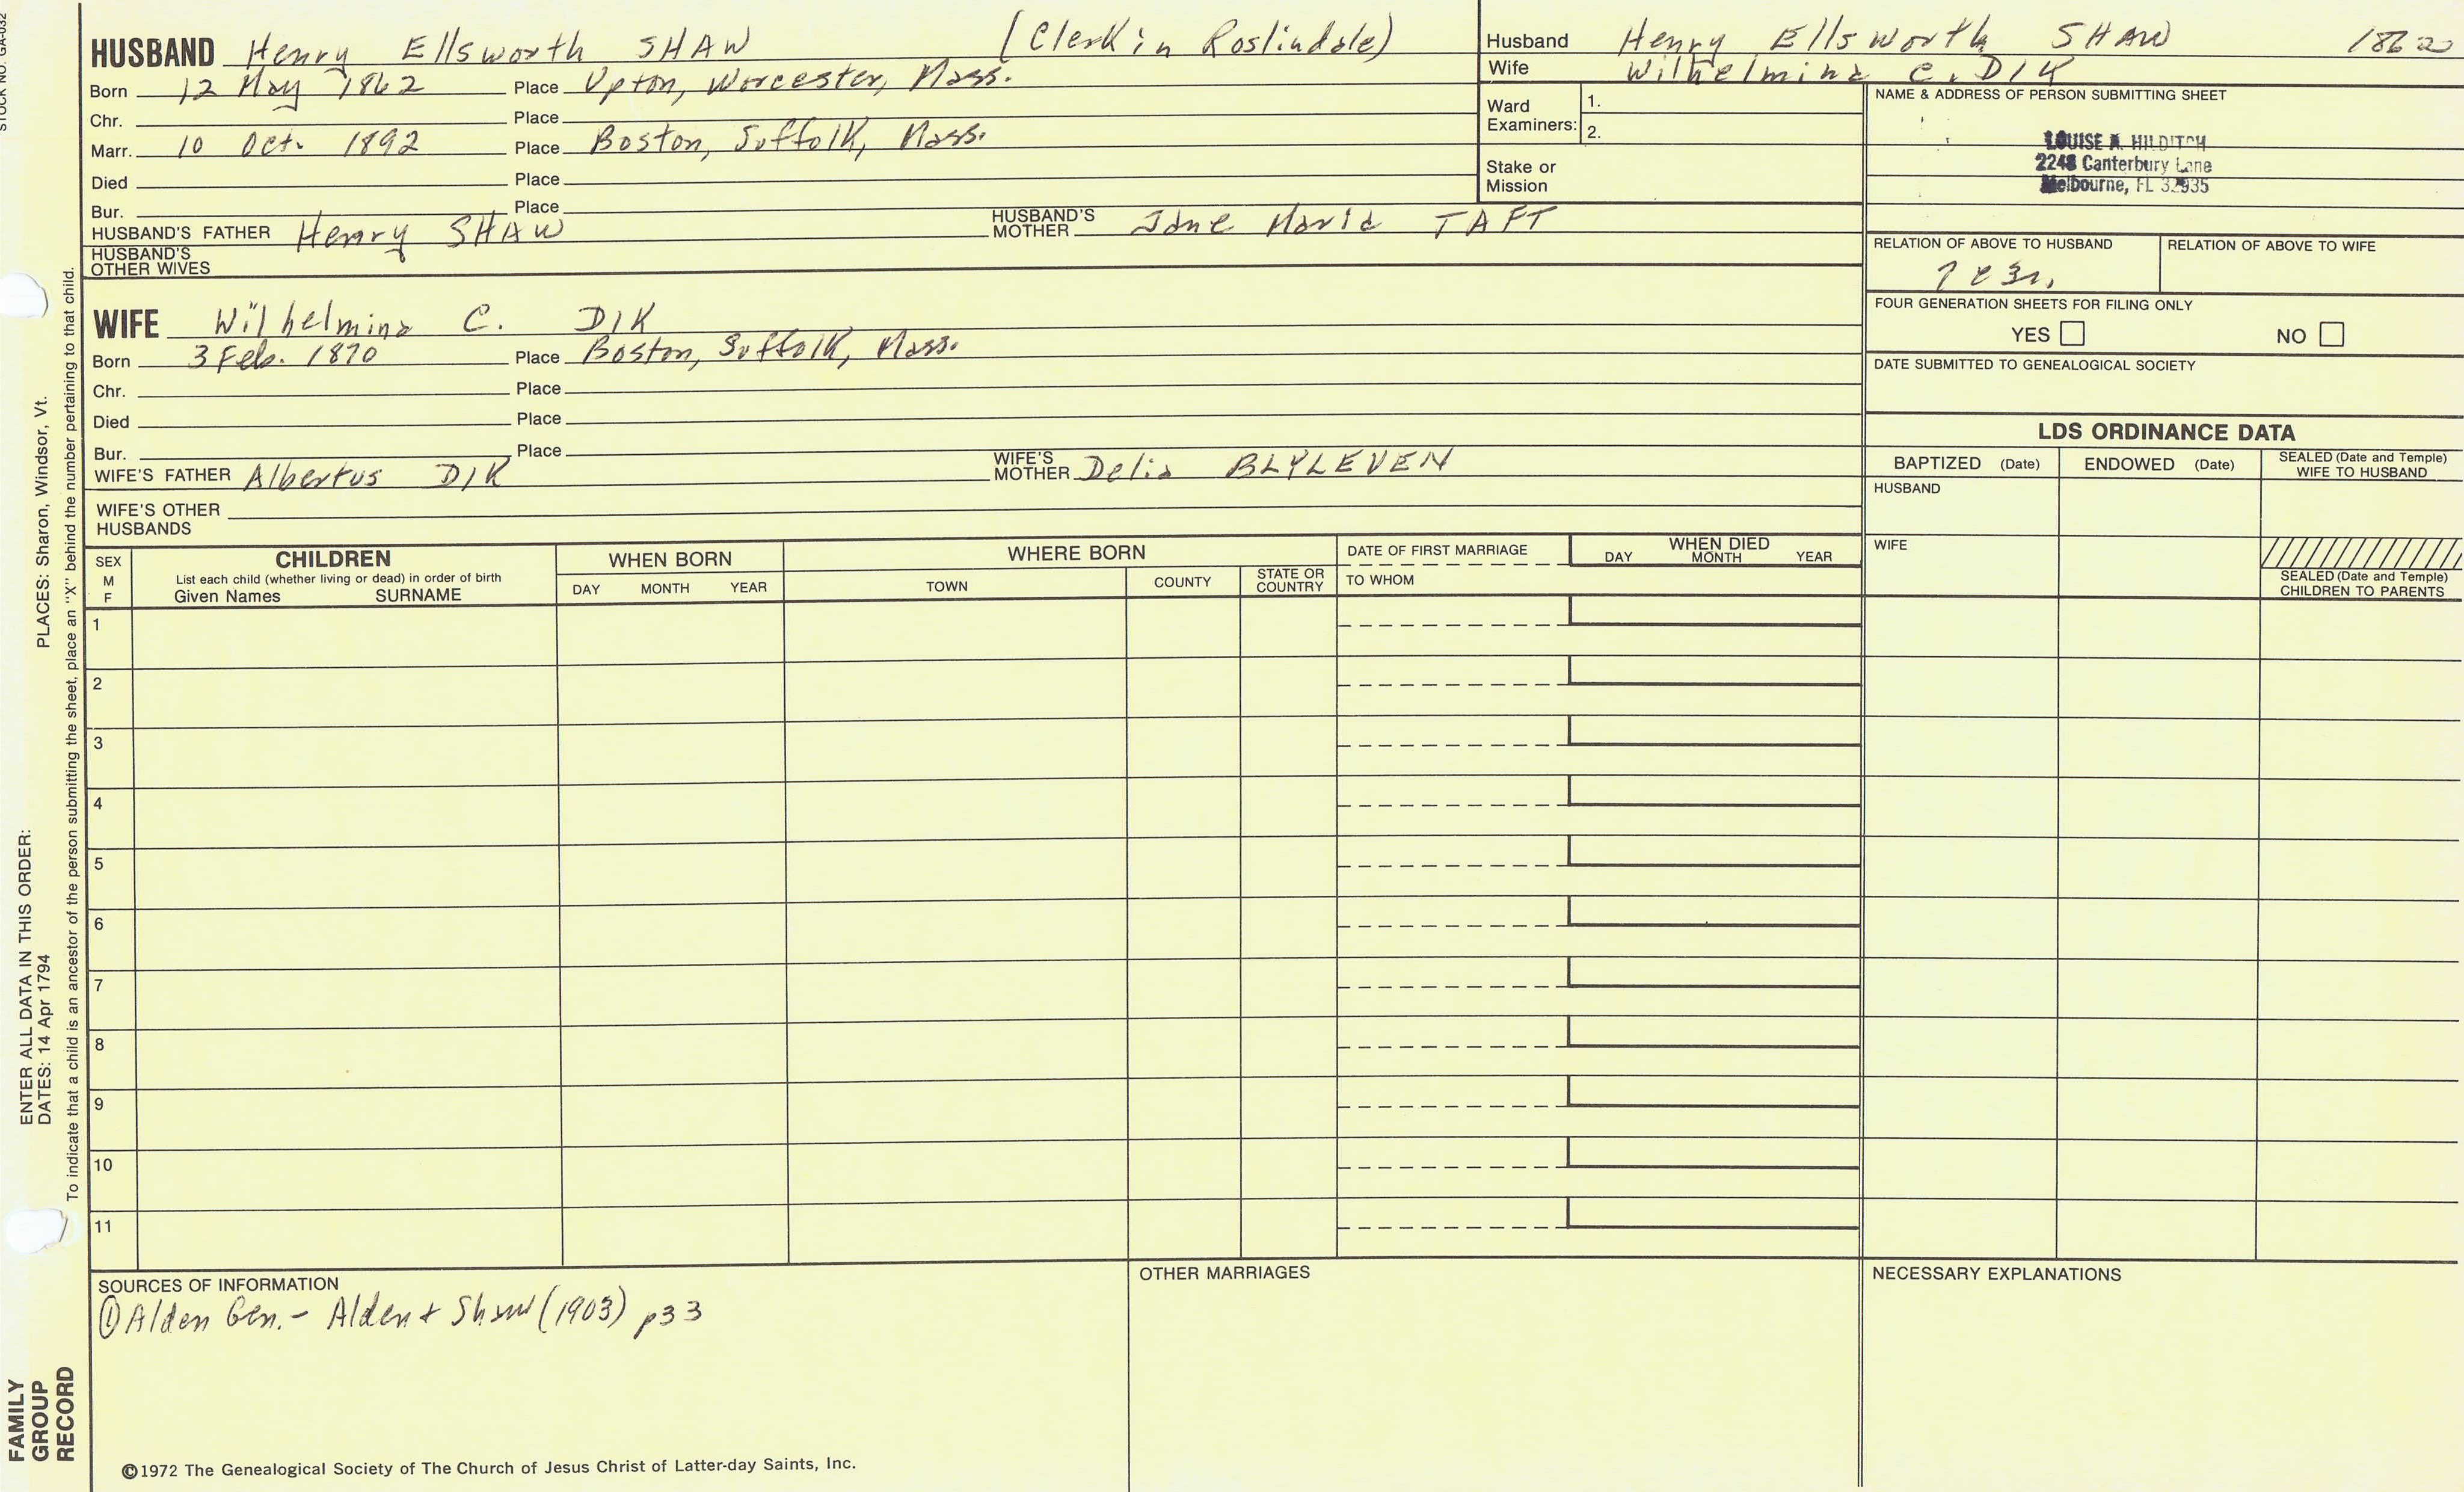 STOCK NO. GA-032
HUSBAND Henry Ellsworth SHAW (Clerk in Roslindale)
Born 12 May 1862 Place Upton, Worcester, Mass.
Chr. Place
Marr. 10 Oct. 1892 Place Boston, Suffolk, Mass.
Died Place
Bur. Place
HUSBAND'S FATHER Henry SHAW HUSBAND'S MOTHER Jane Maria TAFT
HUSBAND'S OTHER WIVES
WIFE Wilhelmina C. DIK
Born 3 Feb. 1870 Place Boston, Suffolk, Mass.
Chr. Place
Died Place
Bur. Place
WIFE'S FATHER Albertus DIK WIFE'S MOTHER Delia BLYLEVEN
WIFE'S OTHER HUSBANDS
Husband Henry Ellsworth SHAW
Wife Wilhelmina C. DIK
Ward Examiners: 1.
2.
Stake or Mission
NAME & ADDRESS OF PERSON SUBMITTING SHEET
LOUISE A. HILDITCH
2248 Canterbury Lane
Melbourne, FL 32935
RELATION OF ABOVE TO HUSBAND RELATION OF ABOVE TO WIFE
FOUR GENERATION SHEETS FOR FILING ONLY
YES NO
DATE SUBMITTED TO GENEALOGICAL SOCIETY
LDS ORDINANCE DATA
BAPTIZED (Date) ENDOWED (Date) SEALED (Date and Temple) WIFE TO HUSBAND
HUSBAND
WIFE
SEALED (Date and Temple) CHILDREN TO PARENTS
SEX M F
CHILDREN
List each child (whether living or dead) in order of birth
Given Names SURNAME
WHEN BORN
DAY MONTH YEAR
WHERE BORN
TOWN COUNTY STATE OR COUNTRY
DATE OF FIRST MARRIAGE
TO WHOM
WHEN DIED
DAY MONTH YEAR
1
2
3
4
5
6
7
8
9
10
11
SOURCES OF INFORMATION
① Alden Gen. - Alden + Shaw (1903) p33
OTHER MARRIAGES
NECESSARY EXPLANATIONS
©1972 The Genealogical Society of The Church of Jesus Christ of Latter-day Saints, Inc.
FAMILY
GROUP
RECORD
ENTER ALL DATA IN THIS ORDER:
DATES: 14 Apr 1794 PLACES: Sharon, Windsor, Vt.
To indicate that a child is an ancestor of the person submitting the sheet, place an "X" behind the number pertaining to that child.